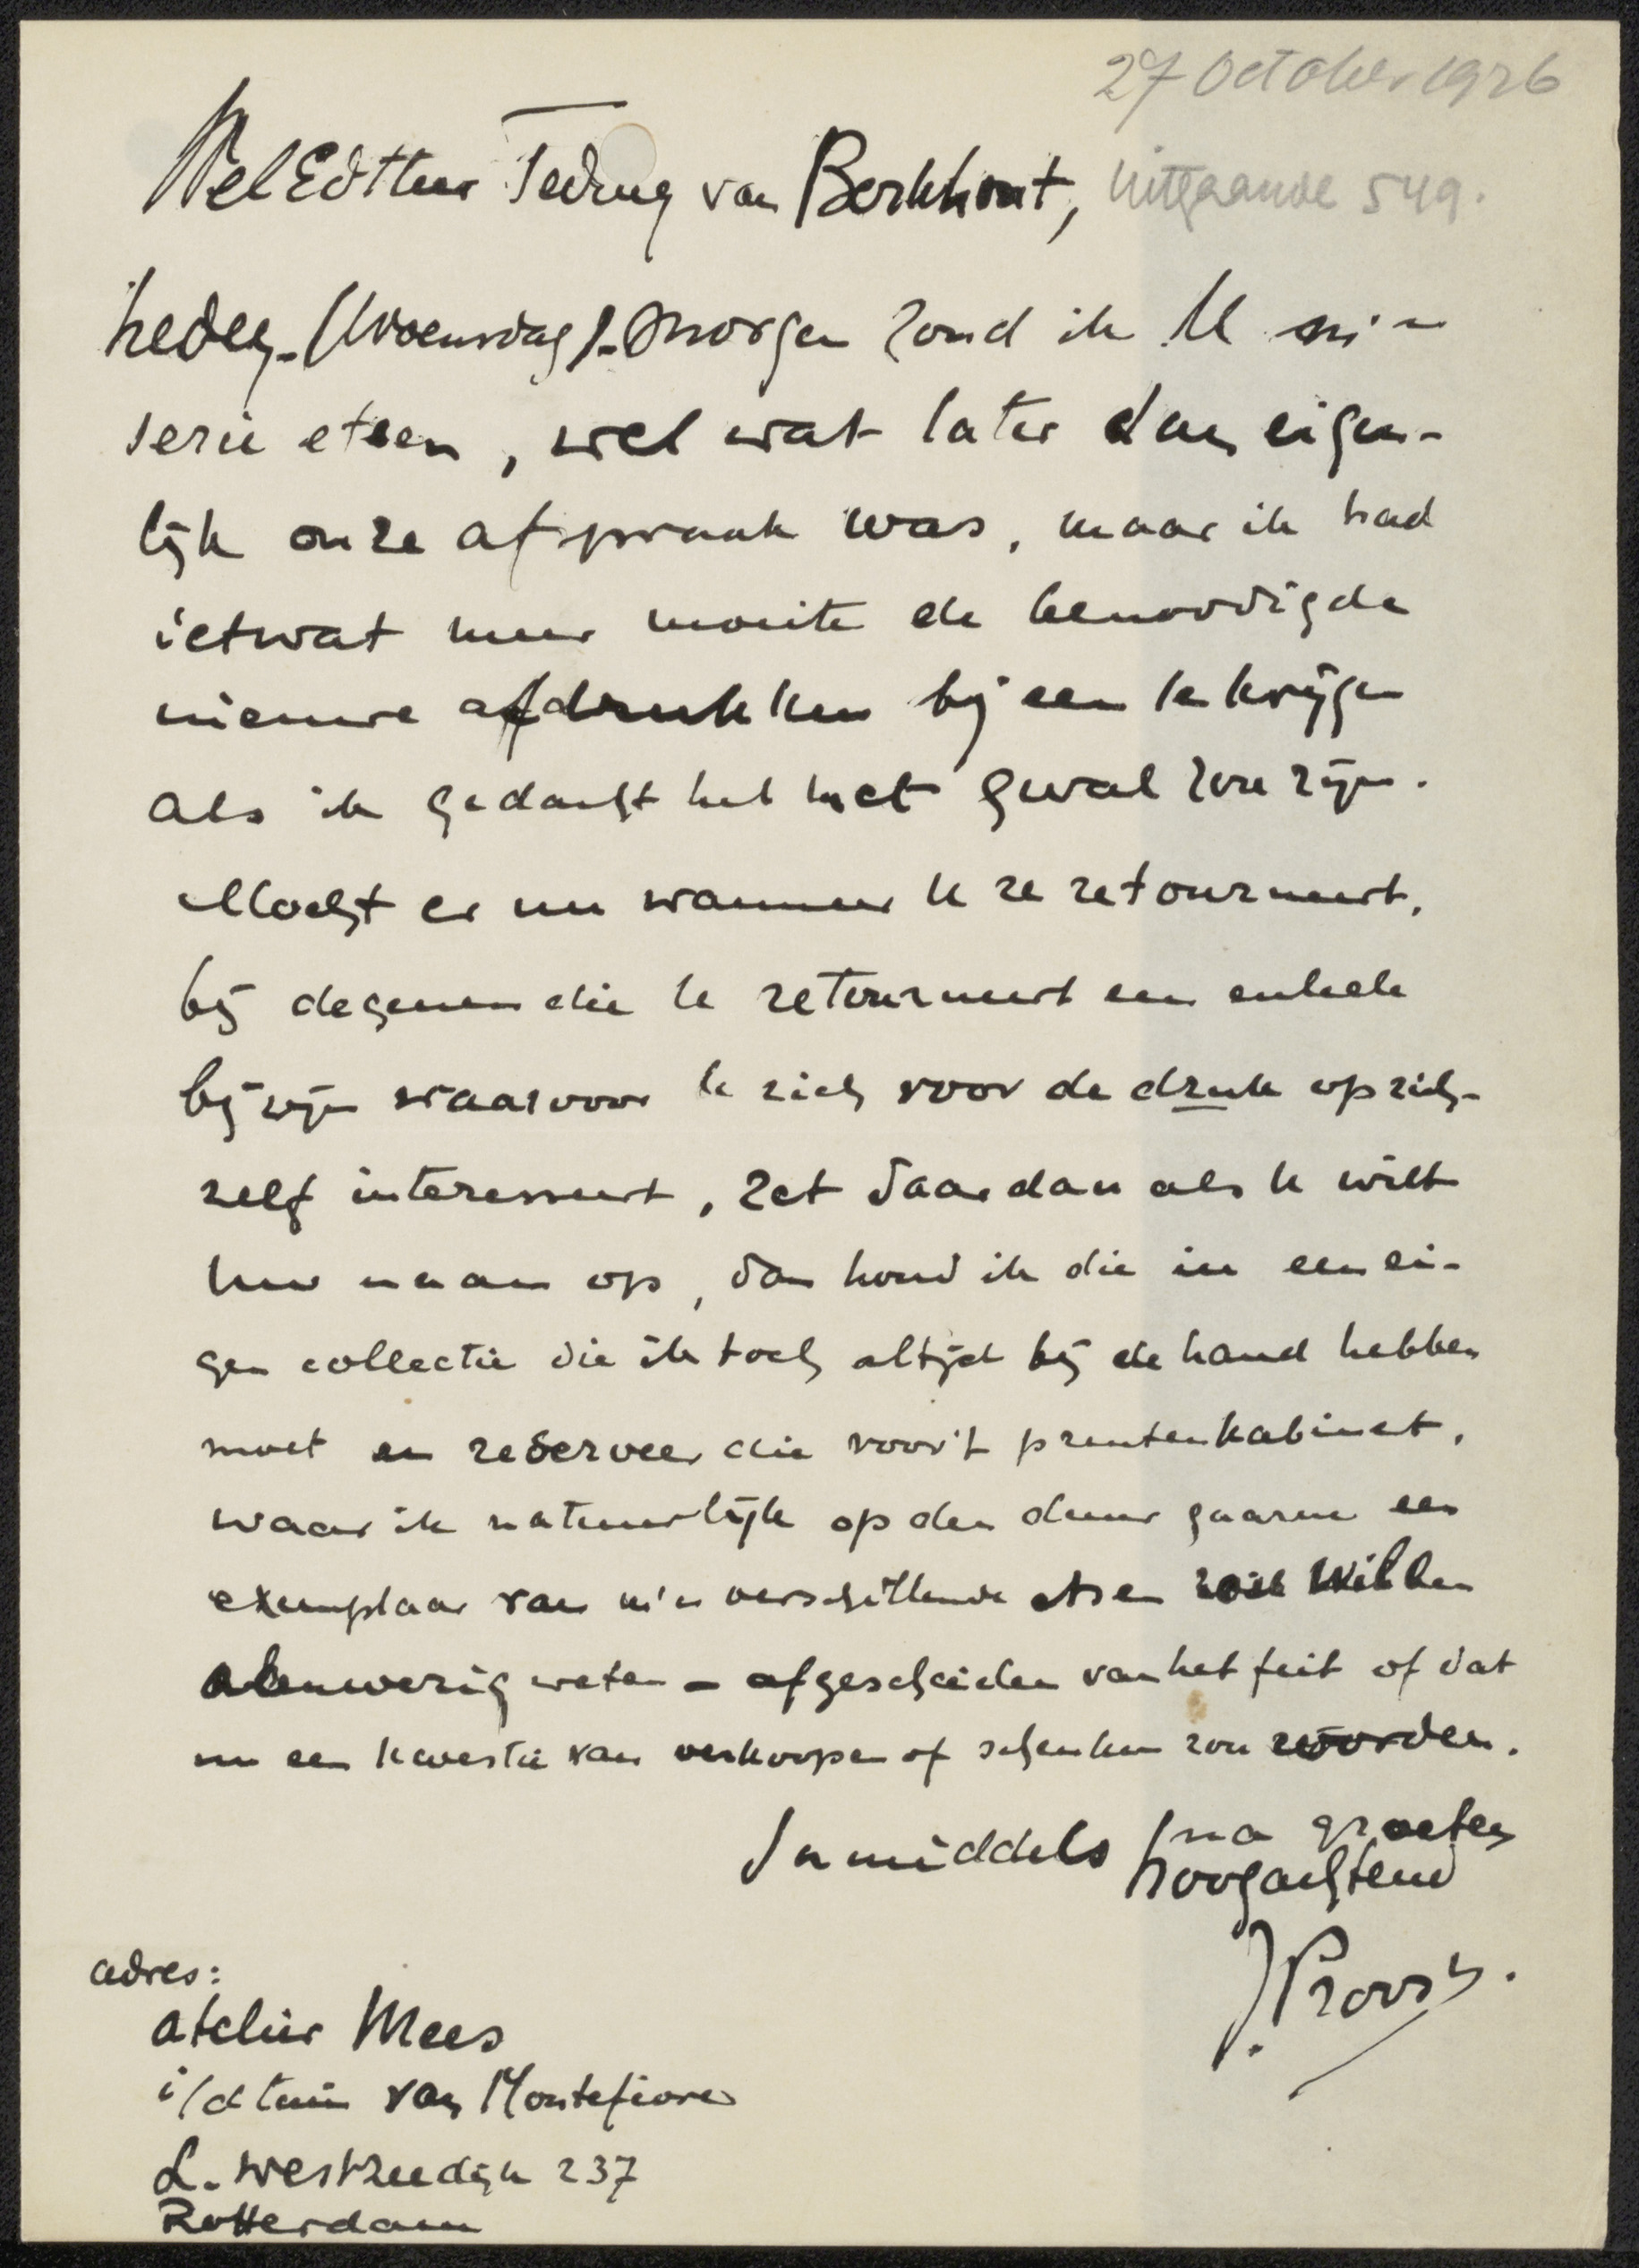 27 October 1926
WelEdHeer Teding van Berkhout,
Uitgaande 549.
heden-(Woensdag)-morgen zond ik U m'n
serie etsen, wel wat later dan eigen-
lijk onze afspraak was, maar ik had
ietwat meer moeite de benoodigde
nieuwe afdrukken bij een te krijgen
als ik gedacht had het geval zou zijn.
Mocht er nu wanneer U ze retourneert,
bij degenen die U retourneert een enkele
bij zijn waarvoor U zich voor de druk op zich-
zelf interesseert, zet daar dan als U wilt
Uw naam op, dan houd ik die in een ei-
gen collectie die ik toch altijd bij de hand hebben
moet en reserveer die voor 't prentenkabinet,
waar ik natuurlijk op den duur gaarne een
exemplaar van m'n verschillende etsen zou willen
aanwezig weten - afgescheiden van het feit of dat
nu een kwestie van verkoopen of schenken zou worden.
Inmiddels na groeten
hoogachtend
J. Prooy.
adres:
atelier Mees
i/d tuin van Montefiore
L. Westzeedijk 237
Rotterdam